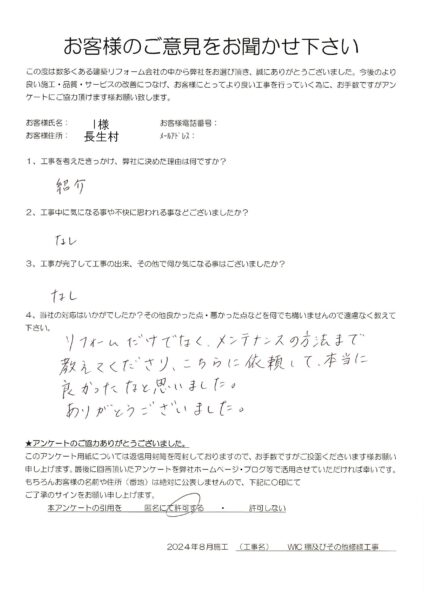 お客様のご意見をお聞かせ下さい
この度は数多くある建築リフォーム会社の中から弊社をお選び頂き、誠にありがとうございました。今後のより
良い施工・品質・サービスの改善につなげ、お客様にとってより良い工事を行っていく為に、お手数ですがアン
ケートにご協力頂けます様お願い致します。
お客様氏名： I様 お客様電話番号：
お客様住所： 長生村 ﾒｰﾙｱﾄﾞﾚｽ：
1、工事を考えたきっかけ、弊社に決めた理由は何ですか？
紹介
2、工事中に気になる事や不快に思われる事などございましたか？
なし
3、工事が完了して工事の出来、その他で何か気になる事はございましたか？
なし
4、当社の対応はいかがでしたか？その他良かった点・悪かった点などを何でも構いませんので遠慮なく教えて
下さい。
リフォームだけでなく、メンテナンスの方法まで
教えてくださり、こちらに依頼して、本当に
良かったなと思いました。
ありがとうございました。
★アンケートのご協力ありがとうございました。
このアンケート用紙については返信用封筒を同封しておりますので、お手数ですがご投函くださいます様お願い
申し上げます。最後に回答頂いたアンケートを弊社ホームページ・ブログ等で活用させていただければ幸いです。
もちろんお客様の名前や住所（番地）は絶対に公表しませんので、下記に〇印にて
ご了承のサインをお願い申し上げます。
本アンケートの引用を 匿名にて許可する ・ 許可しない
2024年8月施工 （工事名） WIC棚及びその他修繕工事